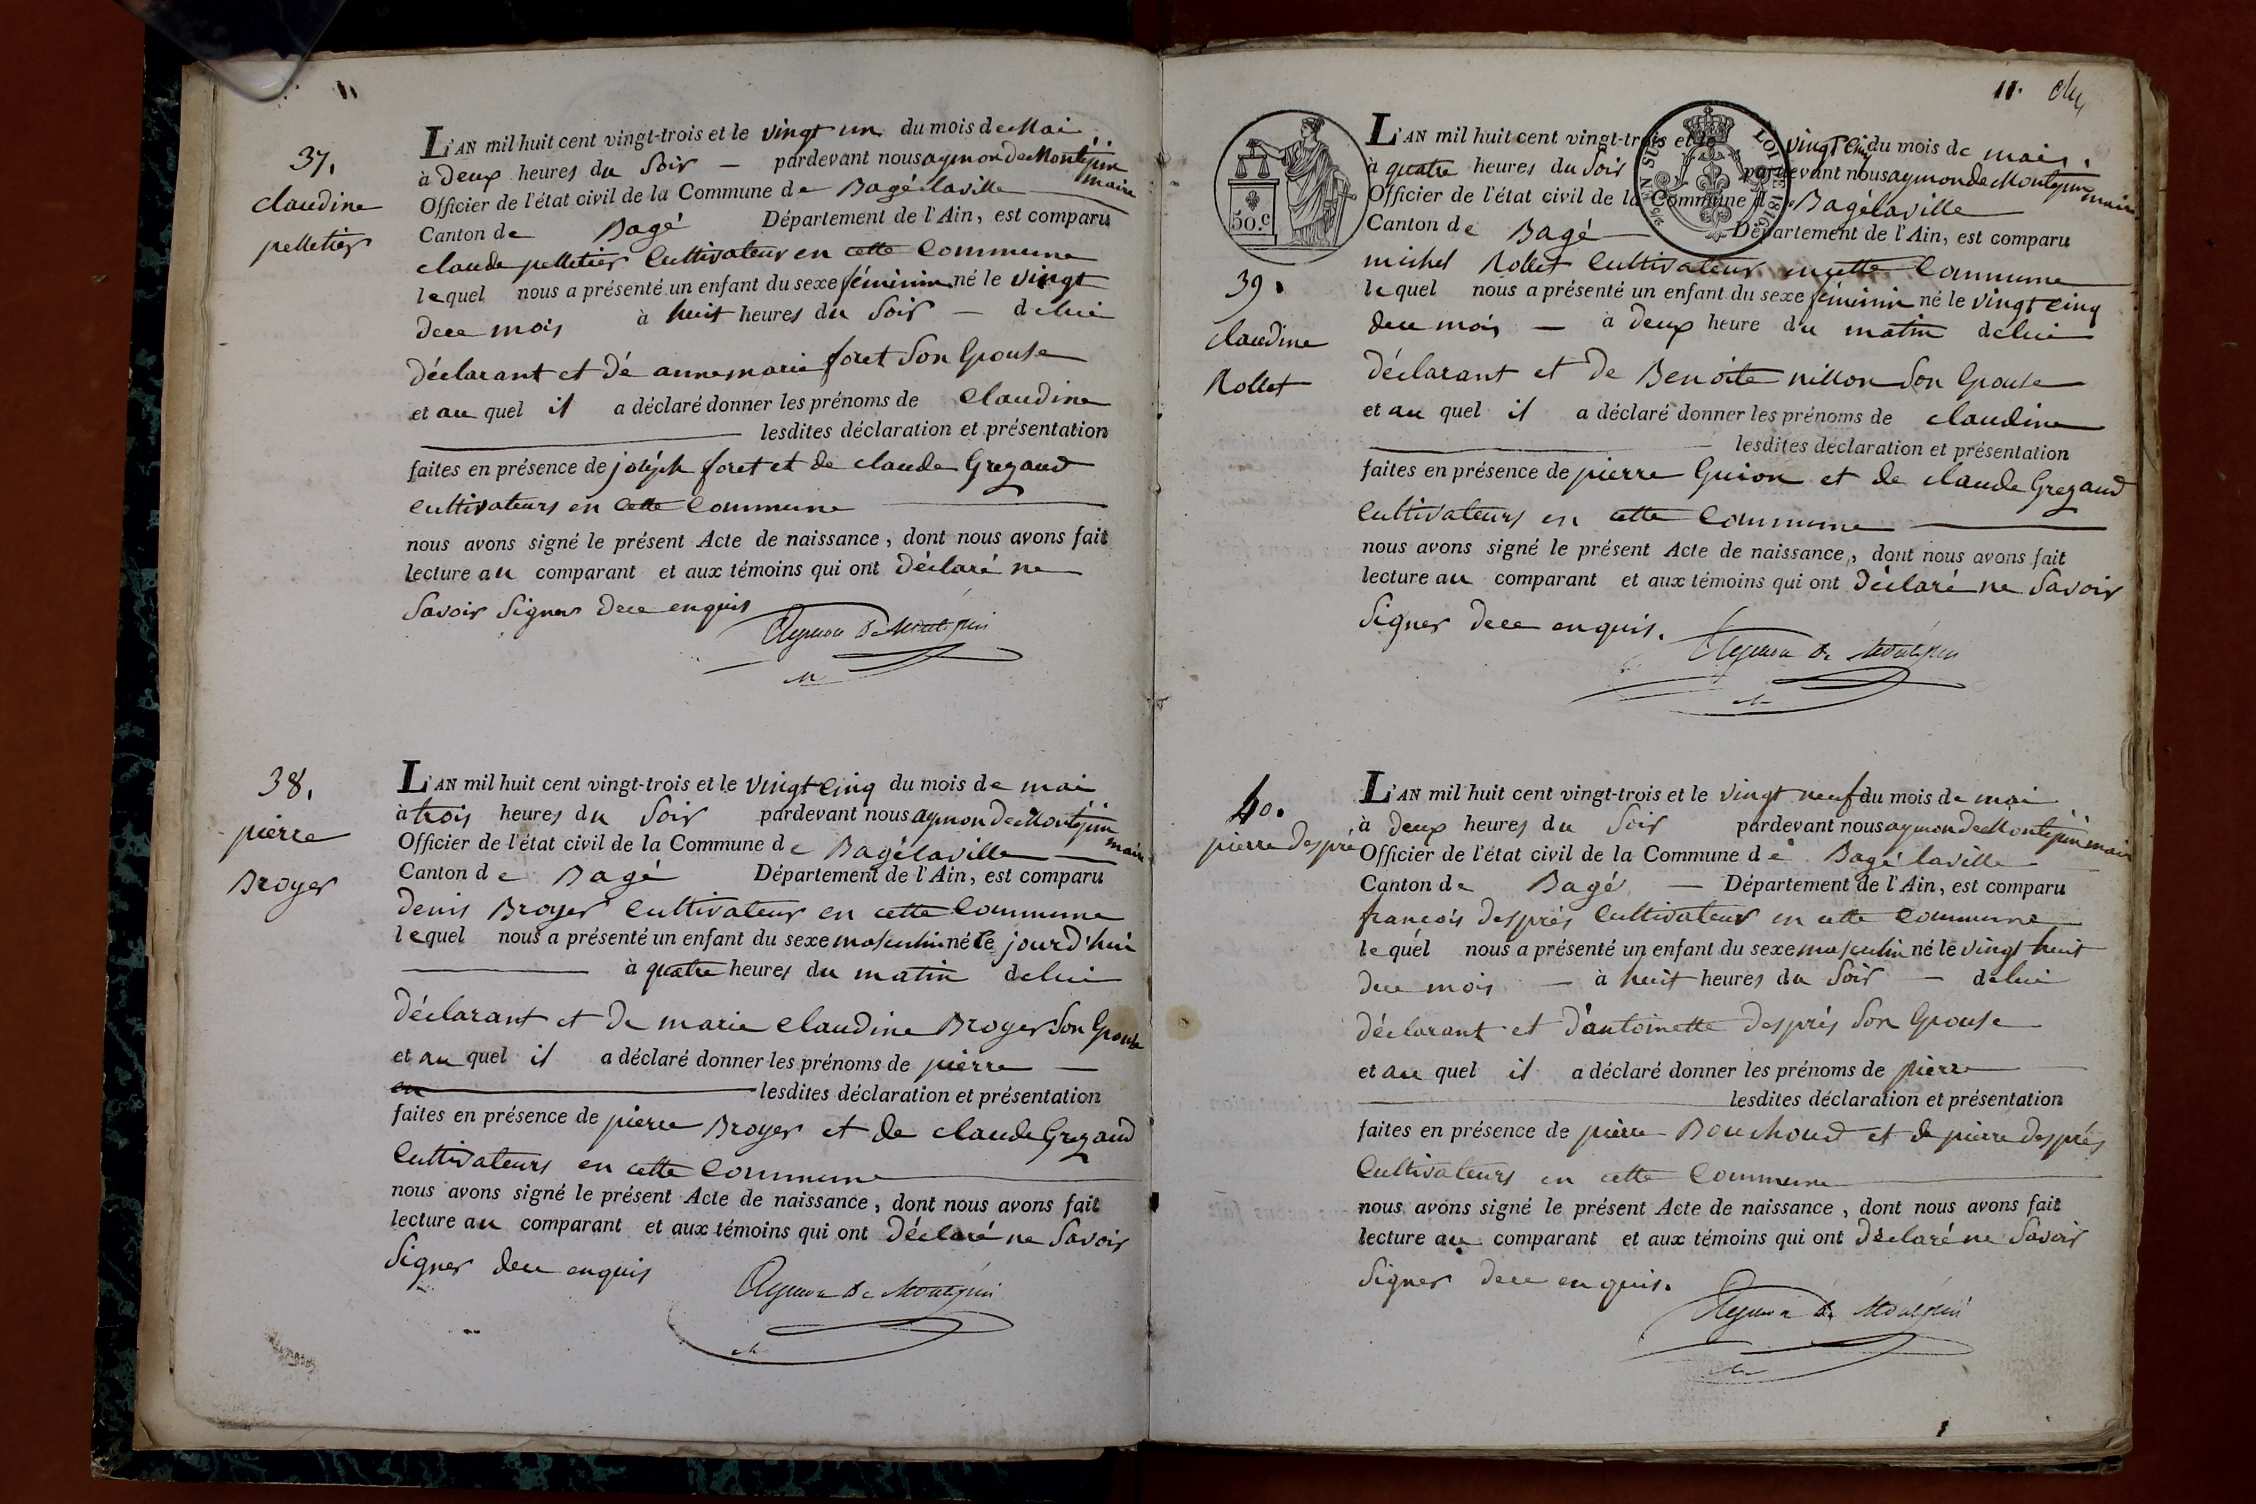 37.
claudine
pelletier
L'AN mil huit cent vingt-trois et le vingt un du mois de Mai
à deux heures du Soir — pardevant nous aymon de Montépin maire
Officier de l'état civil de la Commune de Bagélaville
Canton de Bagé Département de l'Ain, est comparu
claude pelletier Cultivateur en cette Commune
lequel nous a présenté un enfant du sexe féminin né le vingt
dece mois à huit heures du Soir — de lui
déclarant et dé anne marie foret Son Epouse
et au quel il a déclaré donner les prénoms de Claudine
lesdites déclaration et présentation
faites en présence de joséph foret et de claude Gregaud
Cultivateurs en cette Commune
nous avons signé le présent Acte de naissance, dont nous avons fait
lecture au comparant et aux témoins qui ont déclaré ne
Savoir Signer dece enquis
Aymon de Montépin
38.
pierre
Broyer
L'AN mil huit cent vingt-trois et le vingt cinq du mois de mai
à trois heures du Soir pardevant nous aymon de Montépin maire
Officier de l'état civil de la Commune de Bagélaville
Canton de Bagé Département de l'Ain, est comparu
denis Broyer Cultivateur en cette Commune
lequel nous a présenté un enfant du sexe masculin né le jourd'hui
à quatre heures du matin de lui
déclarant et de marie Claudine Broyer Son Epouse
et au quel il a déclaré donner les prénoms de pierre —
lesdites déclaration et présentation
faites en présence de pierre Broyer et de claude Gregaud
Cultivateurs en cette Commune
nous avons signé le présent Acte de naissance, dont nous avons fait
lecture au comparant et aux témoins qui ont déclaré ne Savoir
Signer dece enquis
Aymon de Montépin
11.
50.c
LOI DE 1816
39.
claudine
Rollet
L'AN mil huit cent vingt-trois et le vingt cinq du mois de mai.
à quatre heures du Soir pardevant nous aymon de Montépin maire
Officier de l'état civil de la Commune de Bagélaville
Canton de Bagé Département de l'Ain, est comparu
michel Rollet Cultivateur en cette Commune
lequel nous a présenté un enfant du sexe féminin né le vingt cinq
dece mois — à deux heure du matin de lui
déclarant et de Benoite nillon Son Epouse
et au quel il a déclaré donner les prénoms de claudine
lesdites déclaration et présentation
faites en présence de pierre Guion et de claude Gregaud
Cultivateurs en cette Commune
nous avons signé le présent Acte de naissance, dont nous avons fait
lecture au comparant et aux témoins qui ont déclaré ne Savoir
Signer dece enquis.
Aymon de Montépin
40.
pierre despré
L'AN mil huit cent vingt-trois et le vingt neuf du mois de mai
à deux heures du Soir pardevant nous aymon de Montépin maire
Officier de l'état civil de la Commune de Bagé laville
Canton de Bagé — Département de l'Ain, est comparu
françois després Cultivateur en cette Commune
lequel nous a présenté un enfant du sexe masculin né le vingt huit
dece mois — à huit heures du Soir — de lui
déclarant et d'antoinette després Son Epouse
et au quel il a déclaré donner les prénoms de pierre
lesdites déclaration et présentation
faites en présence de pierre Bouchoud et de pierre després
Cultivateurs en cette Commune
nous avons signé le présent Acte de naissance, dont nous avons fait
lecture au comparant et aux témoins qui ont déclaré ne Savoir
Signer dece enquis.
Aymon de Montépin